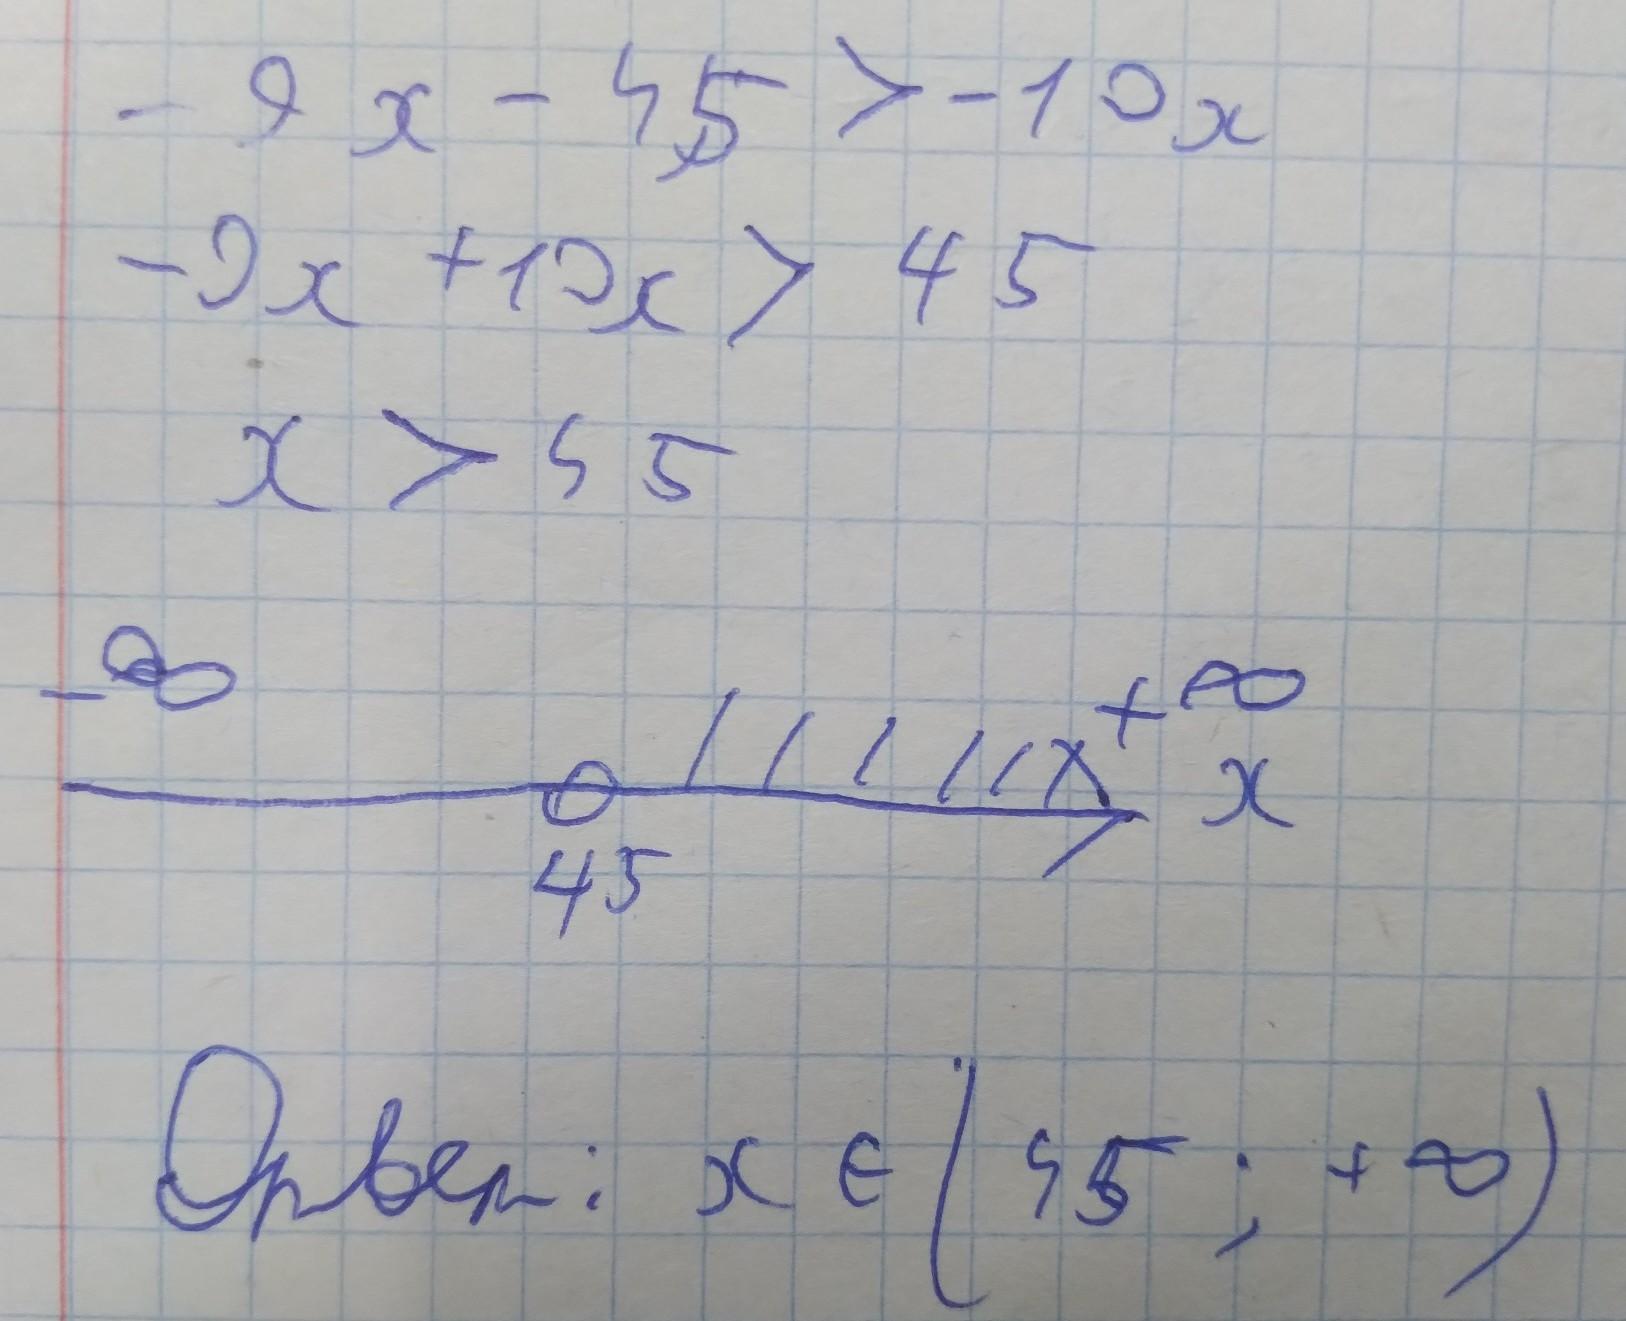 -9x - 45 > -10x
-9x +10x > 45
x > 45
-∞ +∞
x
45
Ответ: x ∈ (45 ; +∞)